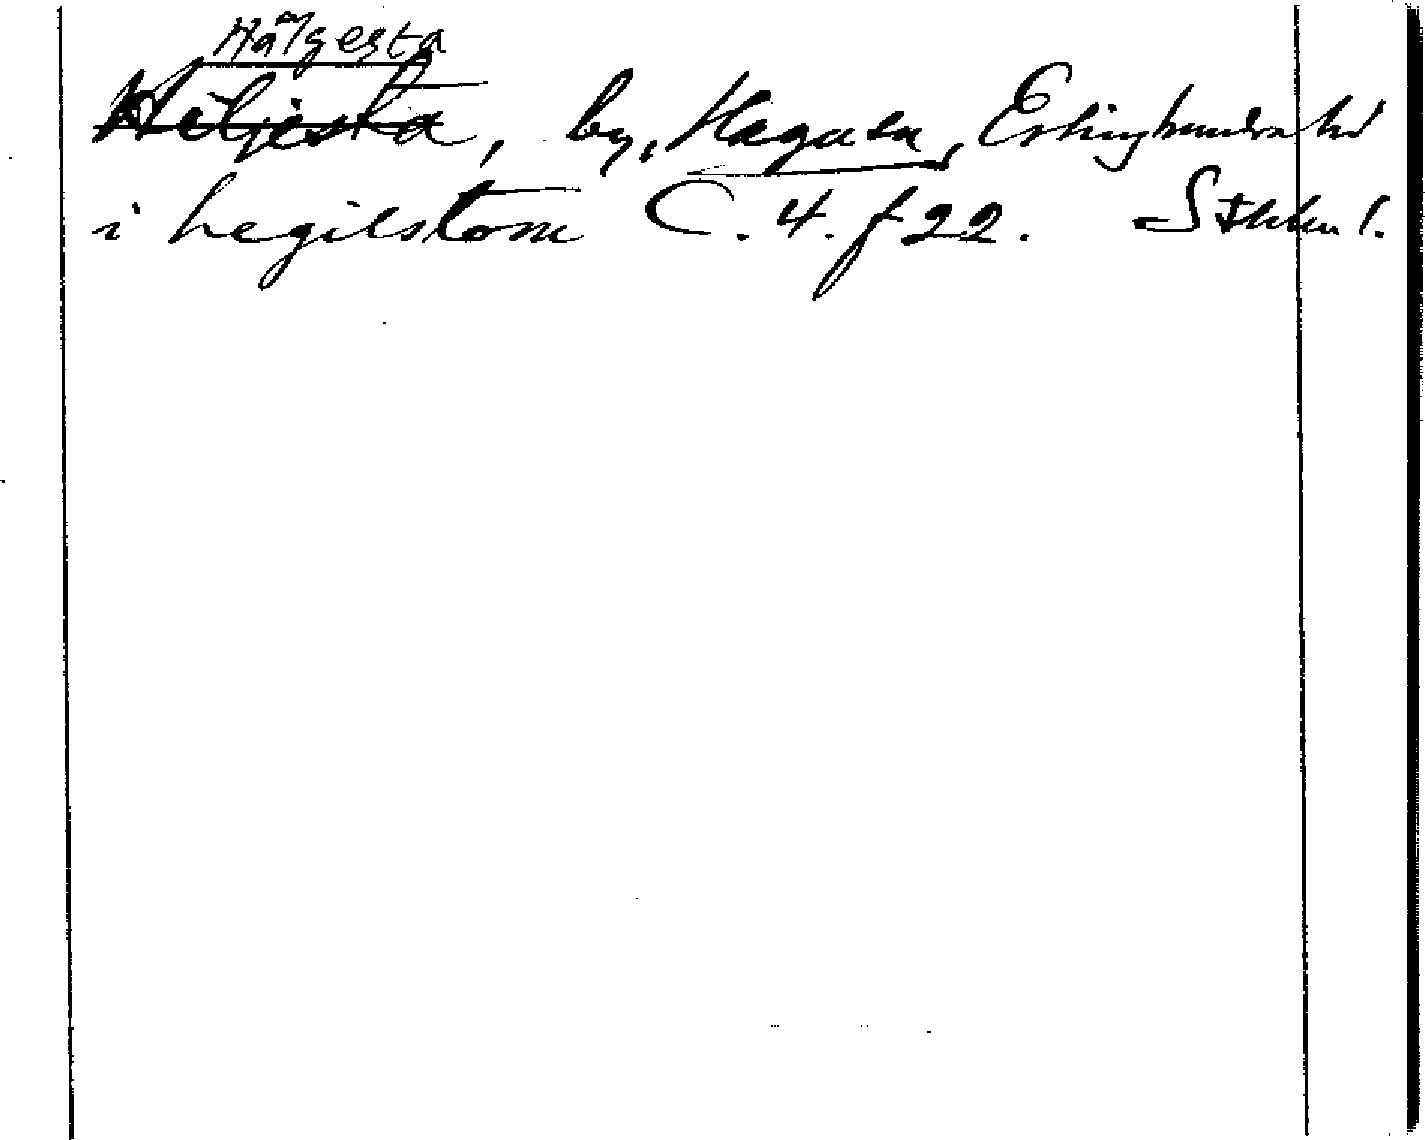 Hälgesta
Heljesta, by, Haga sn, Erlinghundra hd
i hegilstom C. 4. f 22. Sthlm l.